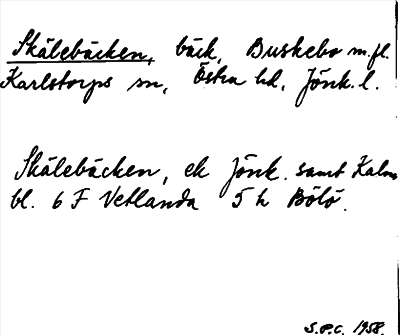 Skälebäcken, bäck, Buskebo m.fl.
Karlstorps sn, Östra hd, Jönk. l.
Skälebäcken, ek Jönk. samt Kalm
bl. 6 F Vetlanda 5 h Bölö.
S.P.C. 1958.